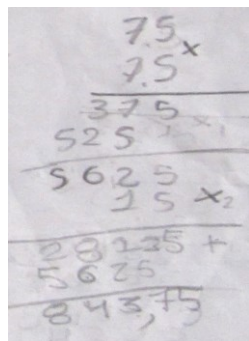 7.5
7.5 x
375
525
5625
15 x2
28125 +
5625
843,75